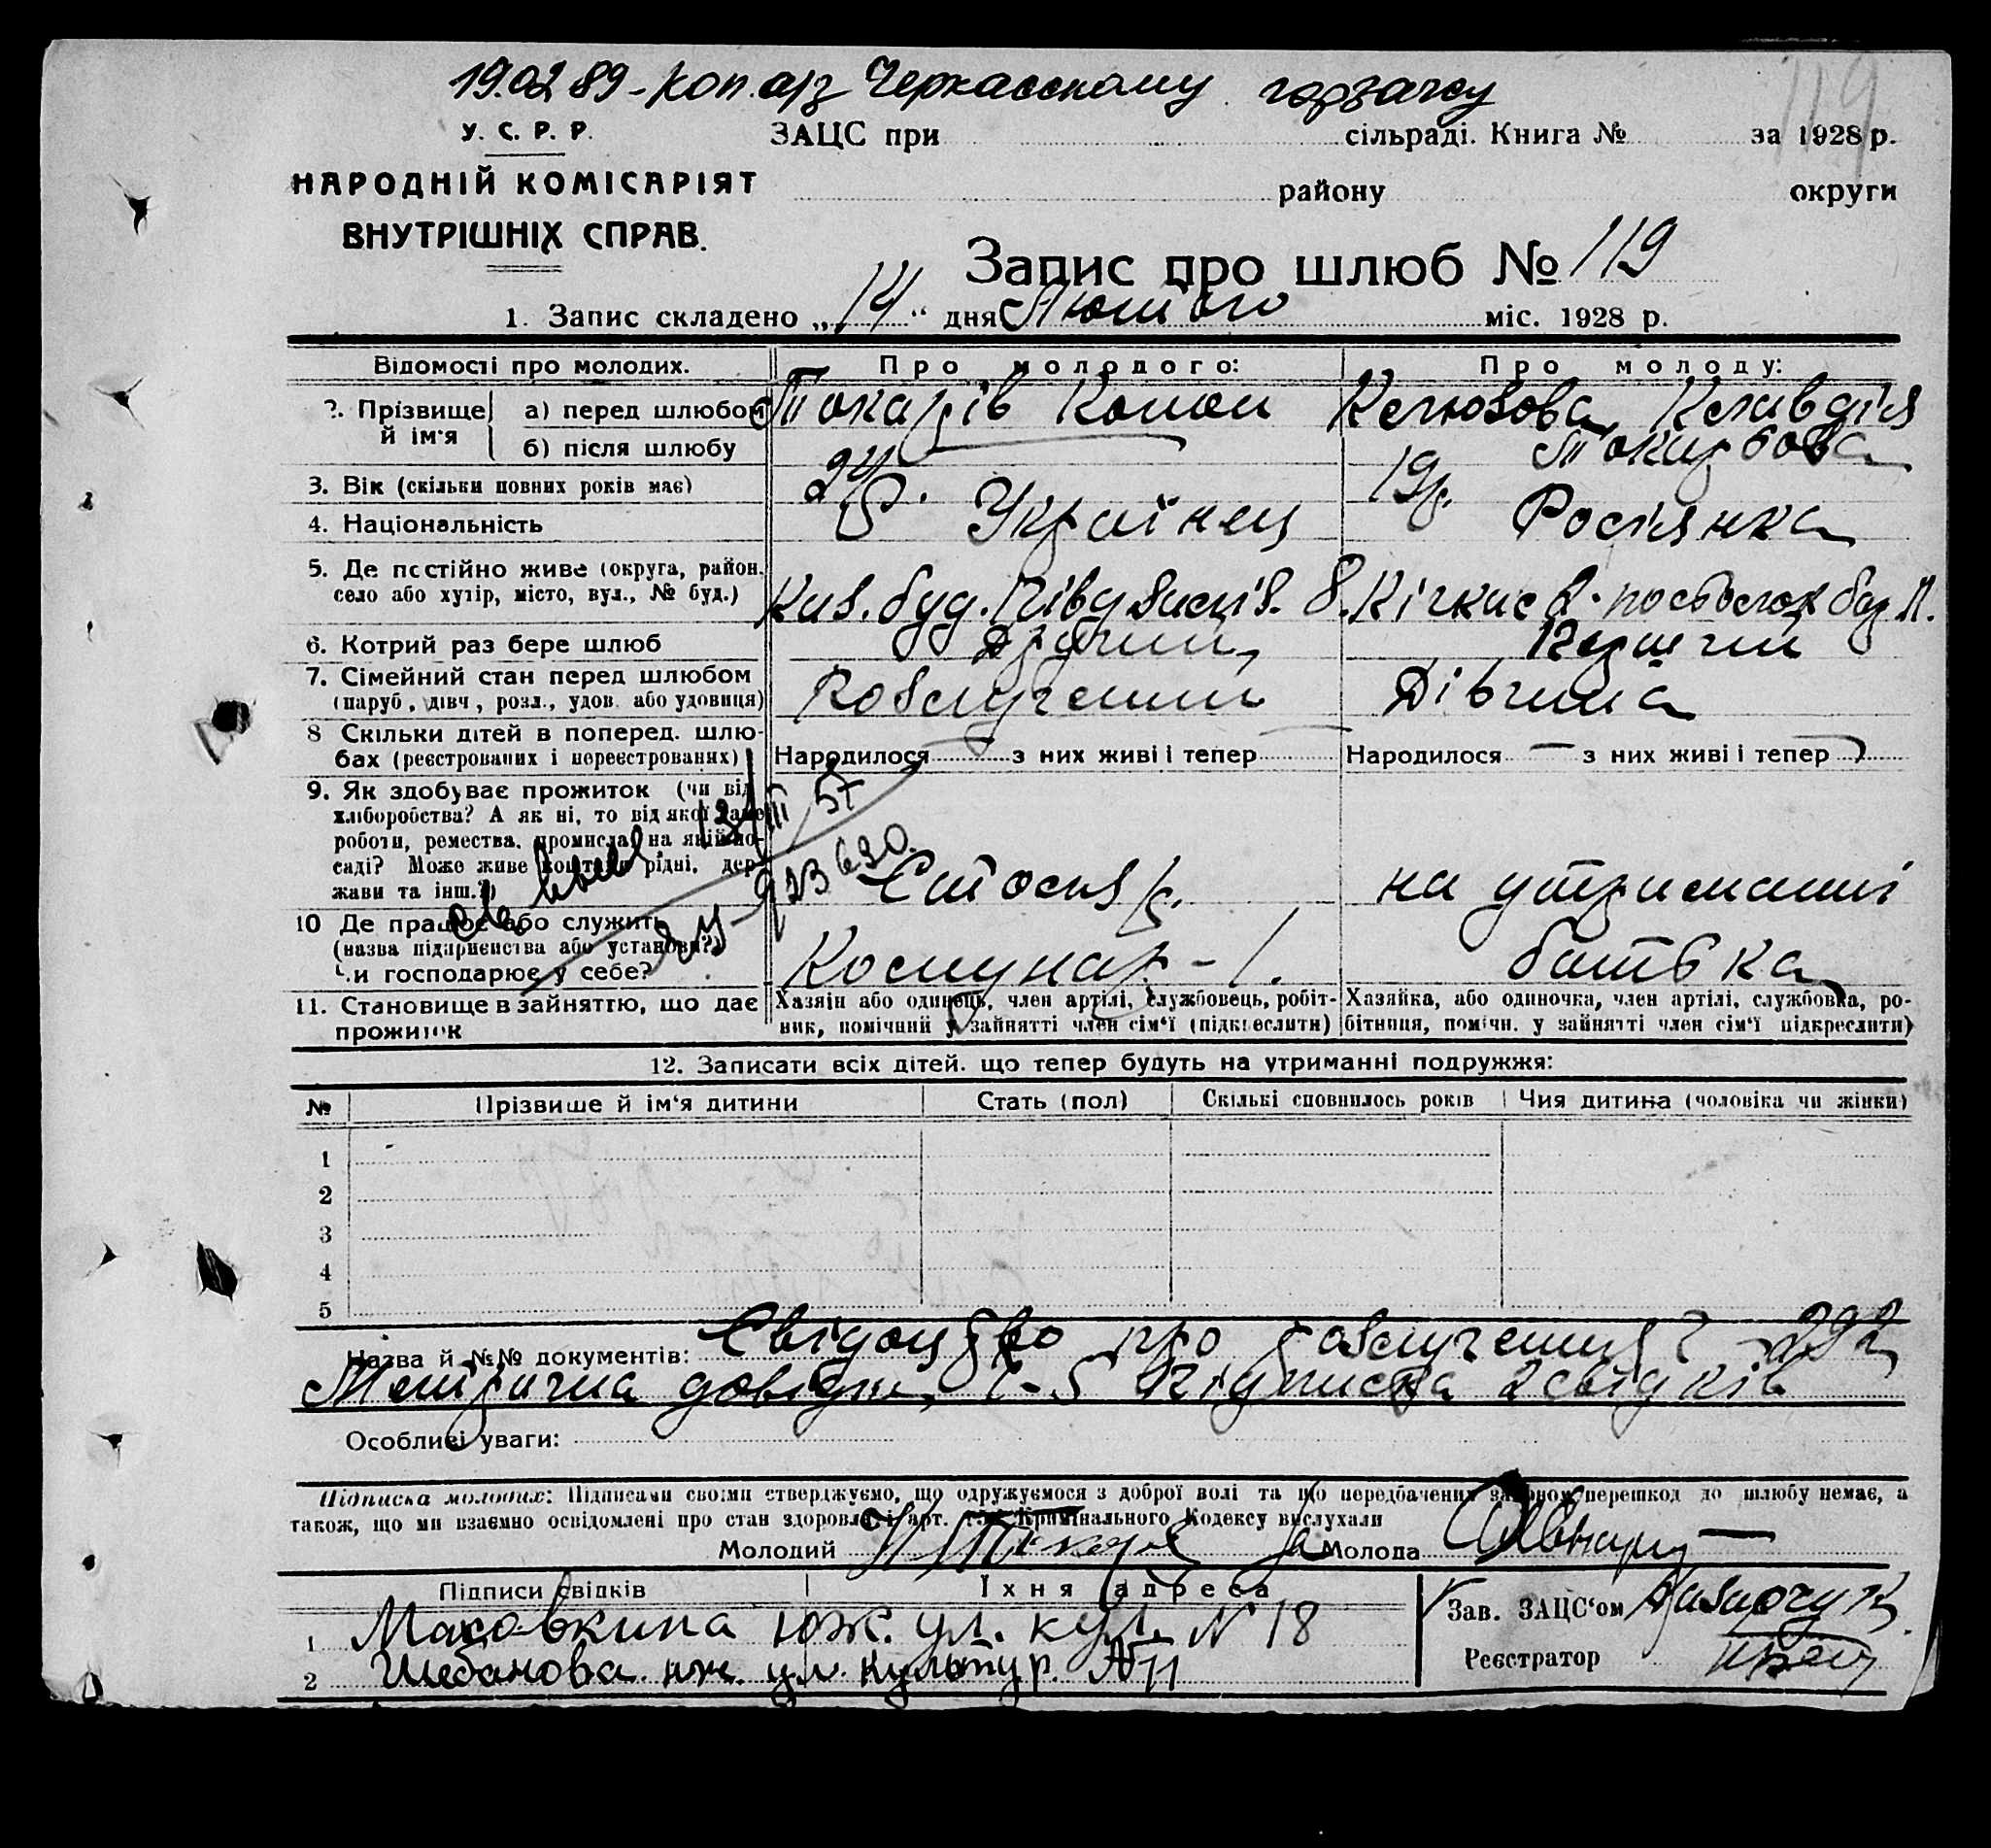 19.02 89 - коп. а/з Черкасскому горзагсу
119
У. С. Р. Р.
НАРОДНІЙ КОМІСАРІЯТ
ВНУТРІШНІХ СПРАВ.
ЗАЦС при сільраді. Книга № за 1928 р.
району округи
Запис про шлюб № 119
1. Запис складено „14" дня Лютого міс. 1928 р.
Відомості про молодих. Про молодого: Про молоду:
2. Прізвище й ім'я
а) перед шлюбом Токарів Конон Клавдія
б) після шлюбу Токарьова
3. Вік (скільки повних років має) 24 р. 19 р.
4. Національність Українец Росіянка
5. Де постійно живе (округа, район, село або хутір, місто, вул., № буд.)
Кічкас
6. Котрий раз бере шлюб Другий Перший
7. Сімейний стан перед шлюбом Розлучений Дівчина
(паруб., дівч., розл., удов. або удовиця)
8 Скільки дітей в поперед. шлюбах (реєстрованих і нереєстрованих)
Народилося з них живі і тепер Народилося — з них живі і тепер
9. Як здобуває прожиток (чи від хліборобства? А як ні, то від якої саме роботи, ремества, промисла, на якій посаді? Може живе коштами рідні, держави та інш.?)
Столяр. на утриманні
12/III 57
10 Де працює або служить (назва підприємства або установи?) Чи господарює у себе?
Комунар - 1. батька
11. Становище в зайняттю, що дає прожиток
Хазяін або одинець, член артілі, службовець, робітник, помічний у зайнятті член сім'ї (підкреслити)
Хазяйка, або одиночка, член артілі, службовка, робітниця, помічн. у зайнятті член сім'ї підкреслити)
12. Записати всіх дітей, що тепер будуть на утриманні подружжя:
№ Прізвише й ім'я дитини Стать (пол) Скількі сповнилось років Чия дитина (чоловіка чи жінки)
1
2
3
4
5
Назва й №№ документів: Свідоцтво про розлучення 292
Метрична довідка, підписка 2 свідків
Особливі уваги:
Підписка молодих: Підписами своїми стверджуємо, що одружуємося з доброї волі та що передбачених законом перешкод до шлюбу немає, а
також, що ми взаємно освідомлені про стан здоровля і арт. Кримінального Кодексу вислухали
Молодий Молода
Підписи свідків Їхня адреса
1 Маховкина юж. ул. кул. № 18
2 Шебанова юж. ул. культур. № 11
Зав. ЗАЦС'ом
Реєстратор